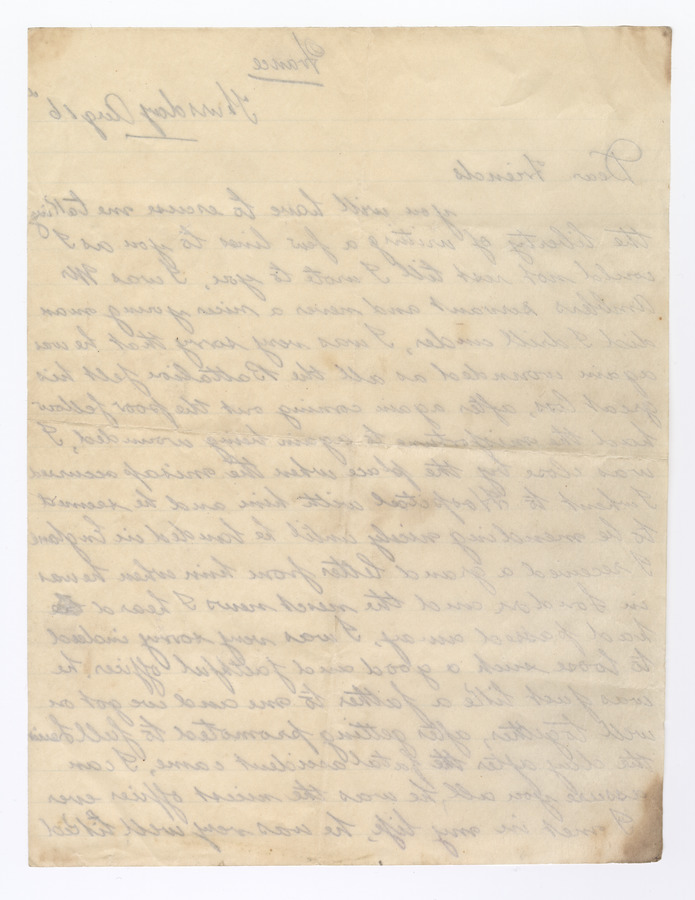 France
Thursday Aug 16th
Dear Friends
you will have to excuse me taking
the liberty of writing a few lines to you as I
would not rest till I wrote to you, I was Mr
servant and never a nicer young man
did I drill under, I was very sorry that he was
again wounded as all the Battalion felt his
great loss, after again coming out the poor fellow
had the misfortune to again being wounded, I
was close by the place when the misap occured
I went to Hospital with him and he seemed
to be mending nicely until he landed in England
I received a grand letter from him when he was
in London and the next news I heard he
had passed away, I was very sorry indeed
to loose such a good and faithful officer he
was just like a father to me and we got on
well together, after getting promoted to full Lieut
the day after the fatal accident came, I can
assure you all, he was the nicest officer ever
I met in my life, he was very well liked